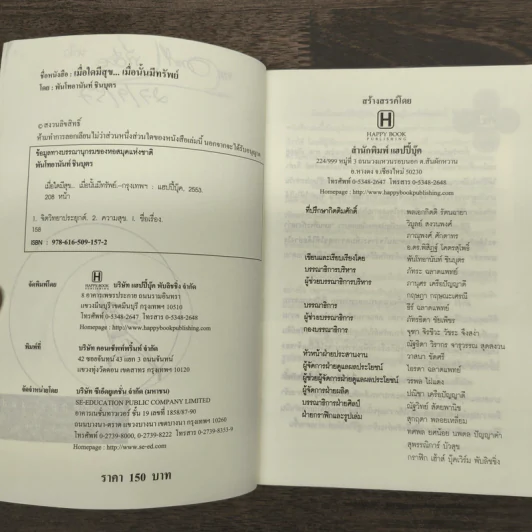 ชื่อหนังสือ : เมื่อใดมีสุข... เมื่อนั้นมีทรัพย์
โดย : พันโทอานันท์ ชินบุตร
© สงวนลิขสิทธิ์
ห้ามทำการลอกเลียนไม่ว่าส่วนหนึ่งส่วนใดของหนังสือเล่มนี้ นอกจากจะได้รับอนุญาต
ข้อมูลทางบรรณานุกรมของหอสมุดแห่งชาติ
พันโทอานันท์ ชินบุตร
เมื่อใดมีสุข... เมื่อนั้นมีทรัพย์.--กรุงเทพฯ : แฮปปี้บุ๊ค, 2553.
208 หน้า
1. จิตวิทยาประยุกต์. 2. ความสุข. I. ชื่อเรื่อง.
158
ISBN : 978-616-509-157-2
จัดพิมพ์โดย
H
HAPPY BOOK
PUBLISHING
บริษัท แฮปปี้บุ๊ค พับลิชชิ่ง จำกัด
8 อาคารเพชรประกาย ถนนรามอินทรา
แขวงมีนบุรี เขตมีนบุรี กรุงเทพฯ 10510
โทรศัพท์ 0-5348-2647 โทรสาร 0-5348-2649
Homepage : http://www.happybookpublishing.com
พิมพ์ที่
บริษัท คอนเซ็พท์พริ้นท์ จำกัด
42 ซอยจันทน์ 43 แยก 3 ถนนจันทน์
แขวงทุ่งวัดดอน เขตสาทร กรุงเทพฯ 10120
จัดจำหน่ายโดย
บริษัท ซีเอ็ดยูเคชั่น จำกัด (มหาชน)
SE-EDUCATION PUBLIC COMPANY LIMITED
อาคารเนชั่นทาวเวอร์ ชั้น 19 เลขที่ 1858/87-90
ถนนบางนา-ตราด แขวงบางนา เขตบางนา กรุงเทพฯ 10260
โทรศัพท์ 0-2739-8000, 0-2739-8222 โทรสาร 0-2739-8356-9
Homepage : http://www.se-ed.com
ราคา 150 บาท
สร้างสรรค์โดย
H
HAPPY BOOK
PUBLISHING
สำนักพิมพ์ แฮปปี้บุ๊ค
224/999 หมู่ที่ 3 ถนนวงแหวนรอบนอก ต.สันผักหวาน
อ.หางดง จ.เชียงใหม่ 50230
โทรศัพท์ 0-5348-2647 โทรสาร 0-5348-2649
Homepage : http://www.happybookpublishing.com
ที่ปรึกษากิตติมศักดิ์ พลเอกกิตติ รัตนฉายา
วิบูลย์ สงวนพงศ์
ภาณุพงศ์ ศักดาทร
อ.ดร.พิสิฏฐ์ โคตรสุโพธิ์
เขียนและเรียบเรียงโดย พันโทอานันท์ ชินบุตร
บรรณาธิการบริหาร ภัทระ ฉลาดแพทย์
ผู้ช่วยบรรณาธิการบริหาร
บรรณาธิการ
ผู้ช่วยบรรณาธิการ
กองบรรณาธิการ
หัวหน้าฝ่ายประสานงาน วาสนา ขัดศรี
ผู้จัดการฝ่ายดูแลผลประโยชน์ โยธกา ฉลาดแพทย์
ผู้ช่วยผู้จัดการฝ่ายดูแลผลประโยชน์ รรพล ไม่แดง
ผู้จัดการฝ่ายผลิต
บรรณาธิการฝ่ายศิลป์
ฝ่ายกราฟิกและรูปเล่ม